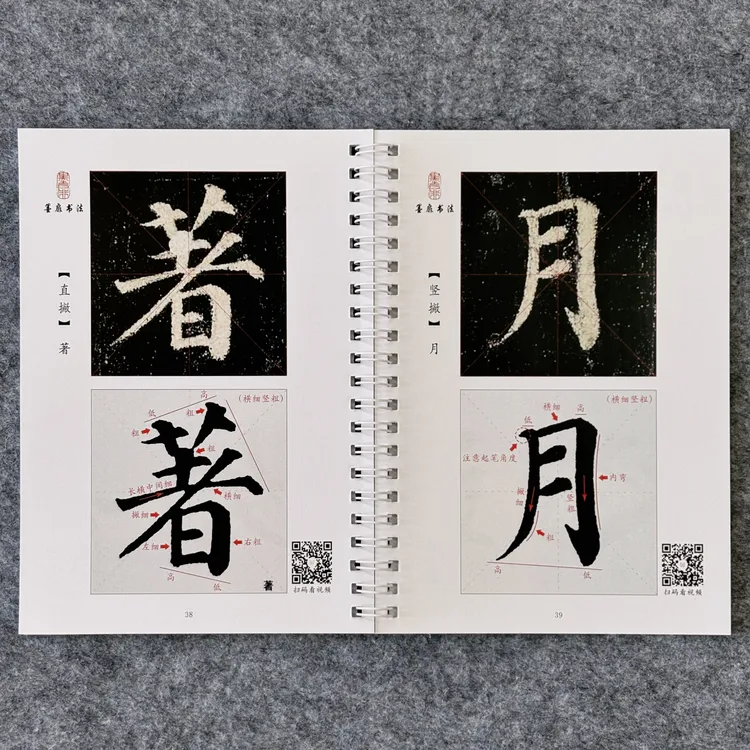 书法
【直撇】 著
著
高
(横细竖粗)
低
粗
粗
粗
长横中间细
横细
撇细
左细
右粗
高
低
著
著
扫码看视频
38
书法
【竖撇】 月
月
横细
高
(横细竖粗)
低
注意起笔角度
内弯
撇细
竖粗
粗
高
低
月
扫码看视频
39